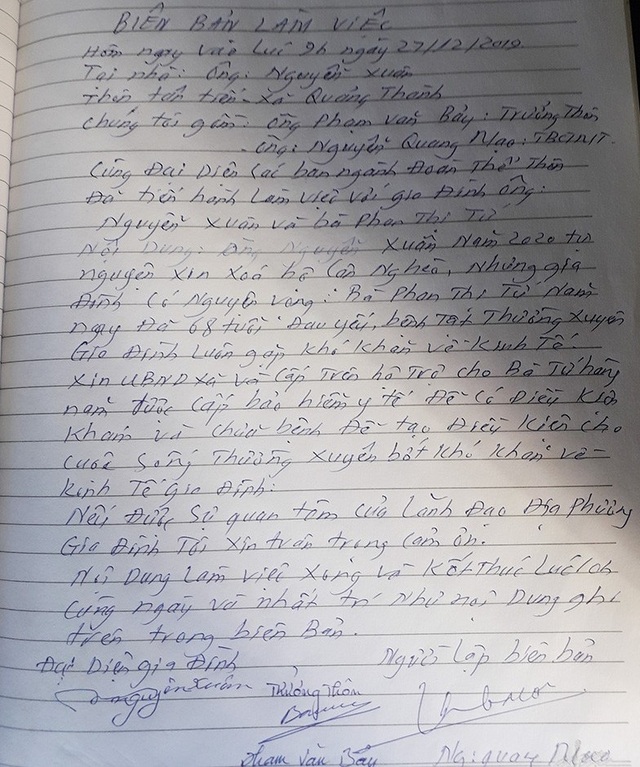 BIÊN BẢN LÀM VIỆC
Hôm ngay vào lúc 9h ngày 27/12/2019.
Tại nhà: Ông: Nguyễn Xuân
thôn tân tiến - xã Quảng Thành
chúng tôi gồm: ông Phạm văn Bảy: Trưởng Thôn
- ông: Nguyễn Quang Mao: TBCTMT.
Cùng Đại Diện các ban ngành Đoàn Thể Thôn
Đã tiến hành làm việc với gia Đình ông:
Nguyễn Xuân và bà Phan Thị Tứ
Nội Dung: Ông Nguyễn Xuân Năm 2020 tự
nguyện xin xoá hộ Cận Nghèo, Nhưng gia
Đình Có Nguyện vọng: Bà Phan Thị Tứ Năm
nay Đã 68 tuổi Đau yếu, bệnh Tật Thường Xuyên
Gia Đình luôn gặp khó khăn về Kinh Tế
Xin UBND Xã và Cấp Trên hỗ Trợ cho Bà Tứ hàng
năm được cấp bảo hiểm y tế Để Có Điều Kiện
Khám và chữa bệnh Để tạo Điều Kiện cho
cuộc sống Thường Xuyên bớt Khó Khăn về
kinh Tế Gia Đình:
Nếu Được Sự quan tâm của Lãnh Đạo Địa Phương
Gia Đình Tôi Xin trân trọng Cảm ơn.
Nội Dung làm việc Xong và Kết Thúc Lúc 10h
Cùng ngày và nhất trí Như nội Dung ghi
trên trong biên Bản.
Đại Diện gia Đình Người Lập biên bản
Nguyễn Xuân Trưởng Thôn
Phạm Văn Bảy Ng: quang Mao